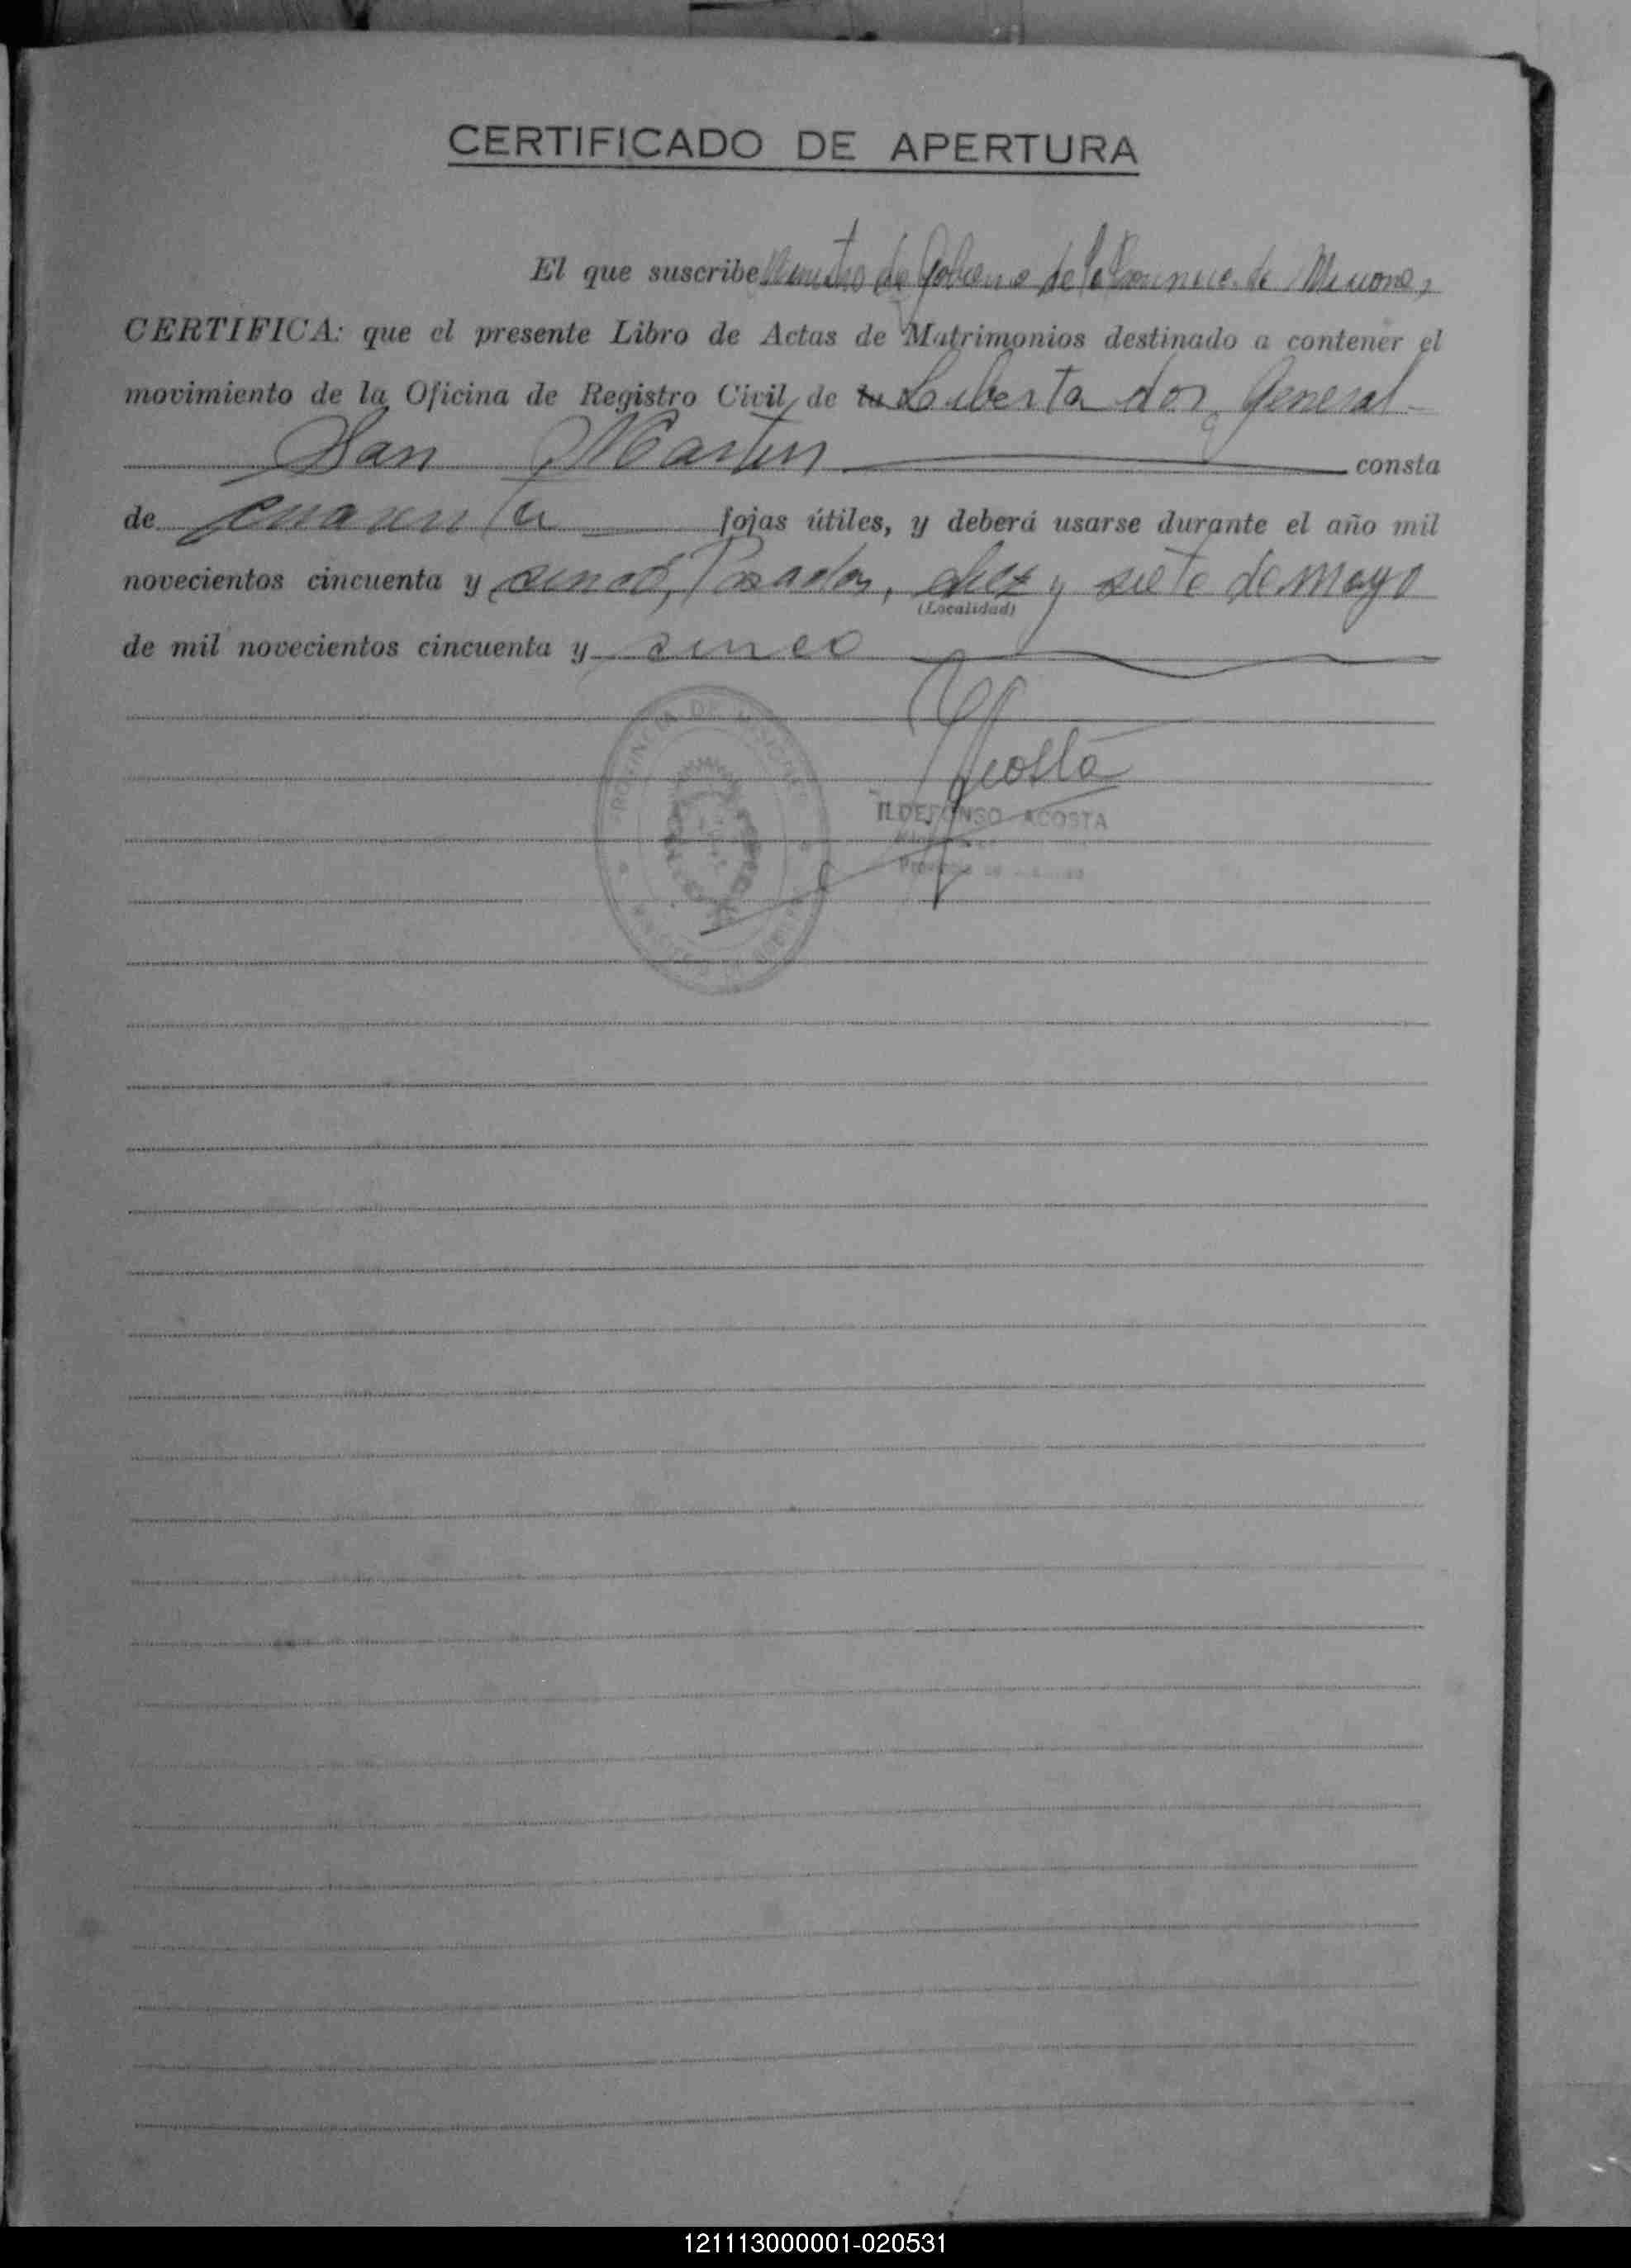 CERTIFICADO DE APERTURA
El que suscribe Ministro de Gobierno de la Provincia de Misiones,
CERTIFICA: que el presente Libro de Actas de Matrimonios destinado a contener el
movimiento de la Oficina de Registro Civil de Libertador General
San Martin consta
de cuarenta fojas útiles, y deberá usarse durante el año mil
novecientos cincuenta y cinco, Posadas, diez y siete de mayo
(Localidad)
de mil novecientos cincuenta y cinco
PROVINCIA DE MISIONES
Acosta
ILDEFONSO ACOSTA
121113000001-020531